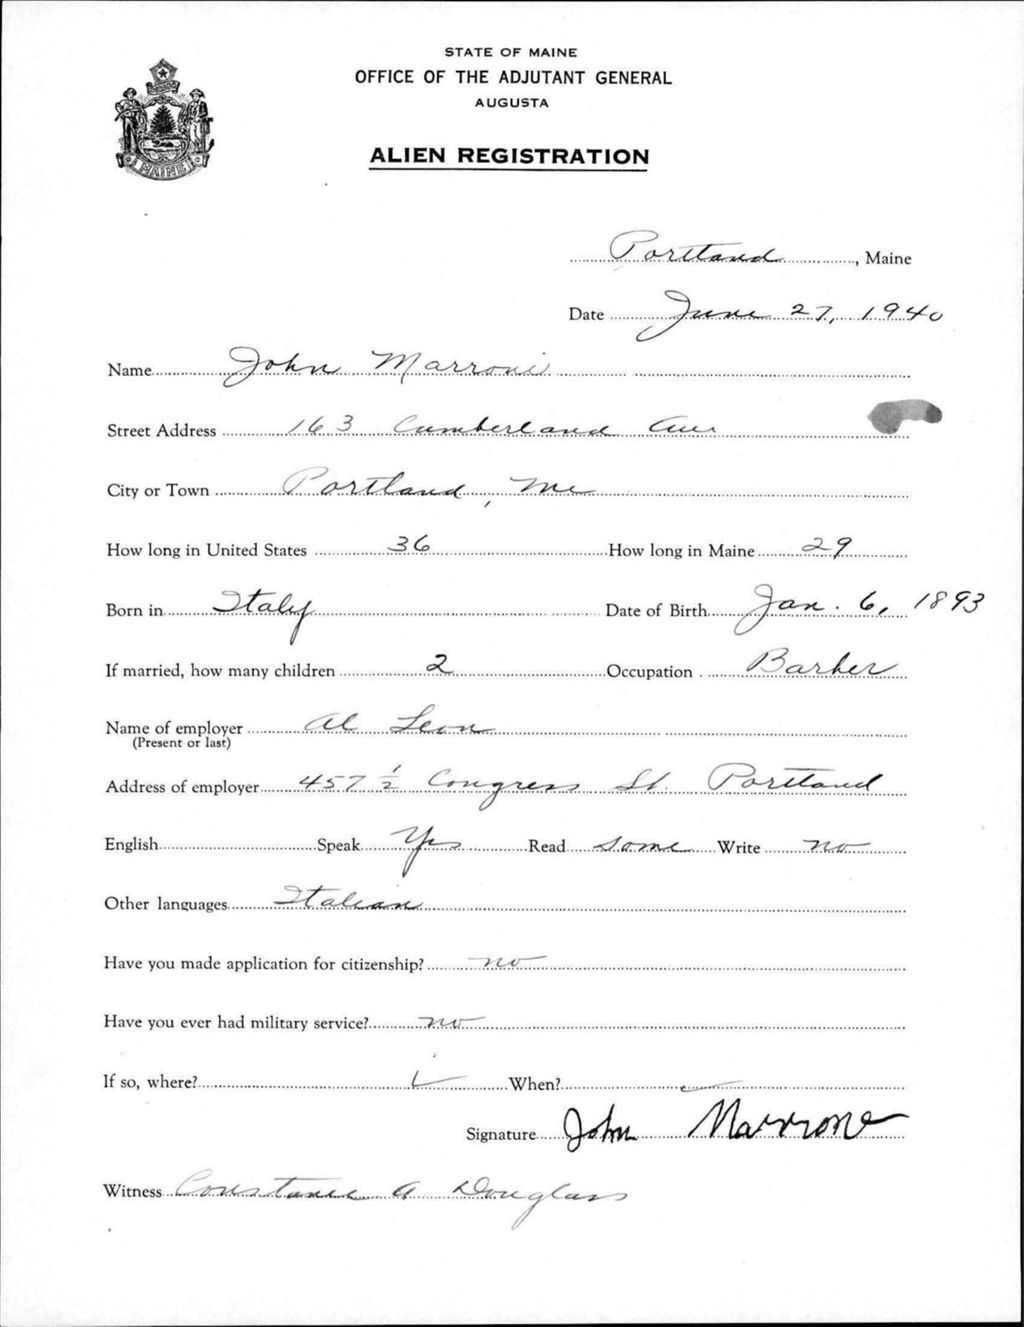 STATE OF MAINE
OFFICE OF THE ADJUTANT GENERAL
AUGUSTA
ALIEN REGISTRATION
MAINE
Portland, Maine
Date June 27, 1940
Name John Marroni
Street Address 163 Cumberland Ave
City or Town Portland, Me
How long in United States 36 How long in Maine 29
Born in Italy Date of Birth Jan. 6, 1893
If married, how many children 2 Occupation Barber
Name of employer Al Leon
(Present or last)
Address of employer 457 1/2 Congress St. Portland
English Speak Yes Read some Write no
Other languages Italian
Have you made application for citizenship? no
Have you ever had military service? no
If so, where? When?
Signature John Marrone
Witness Constance A Douglass